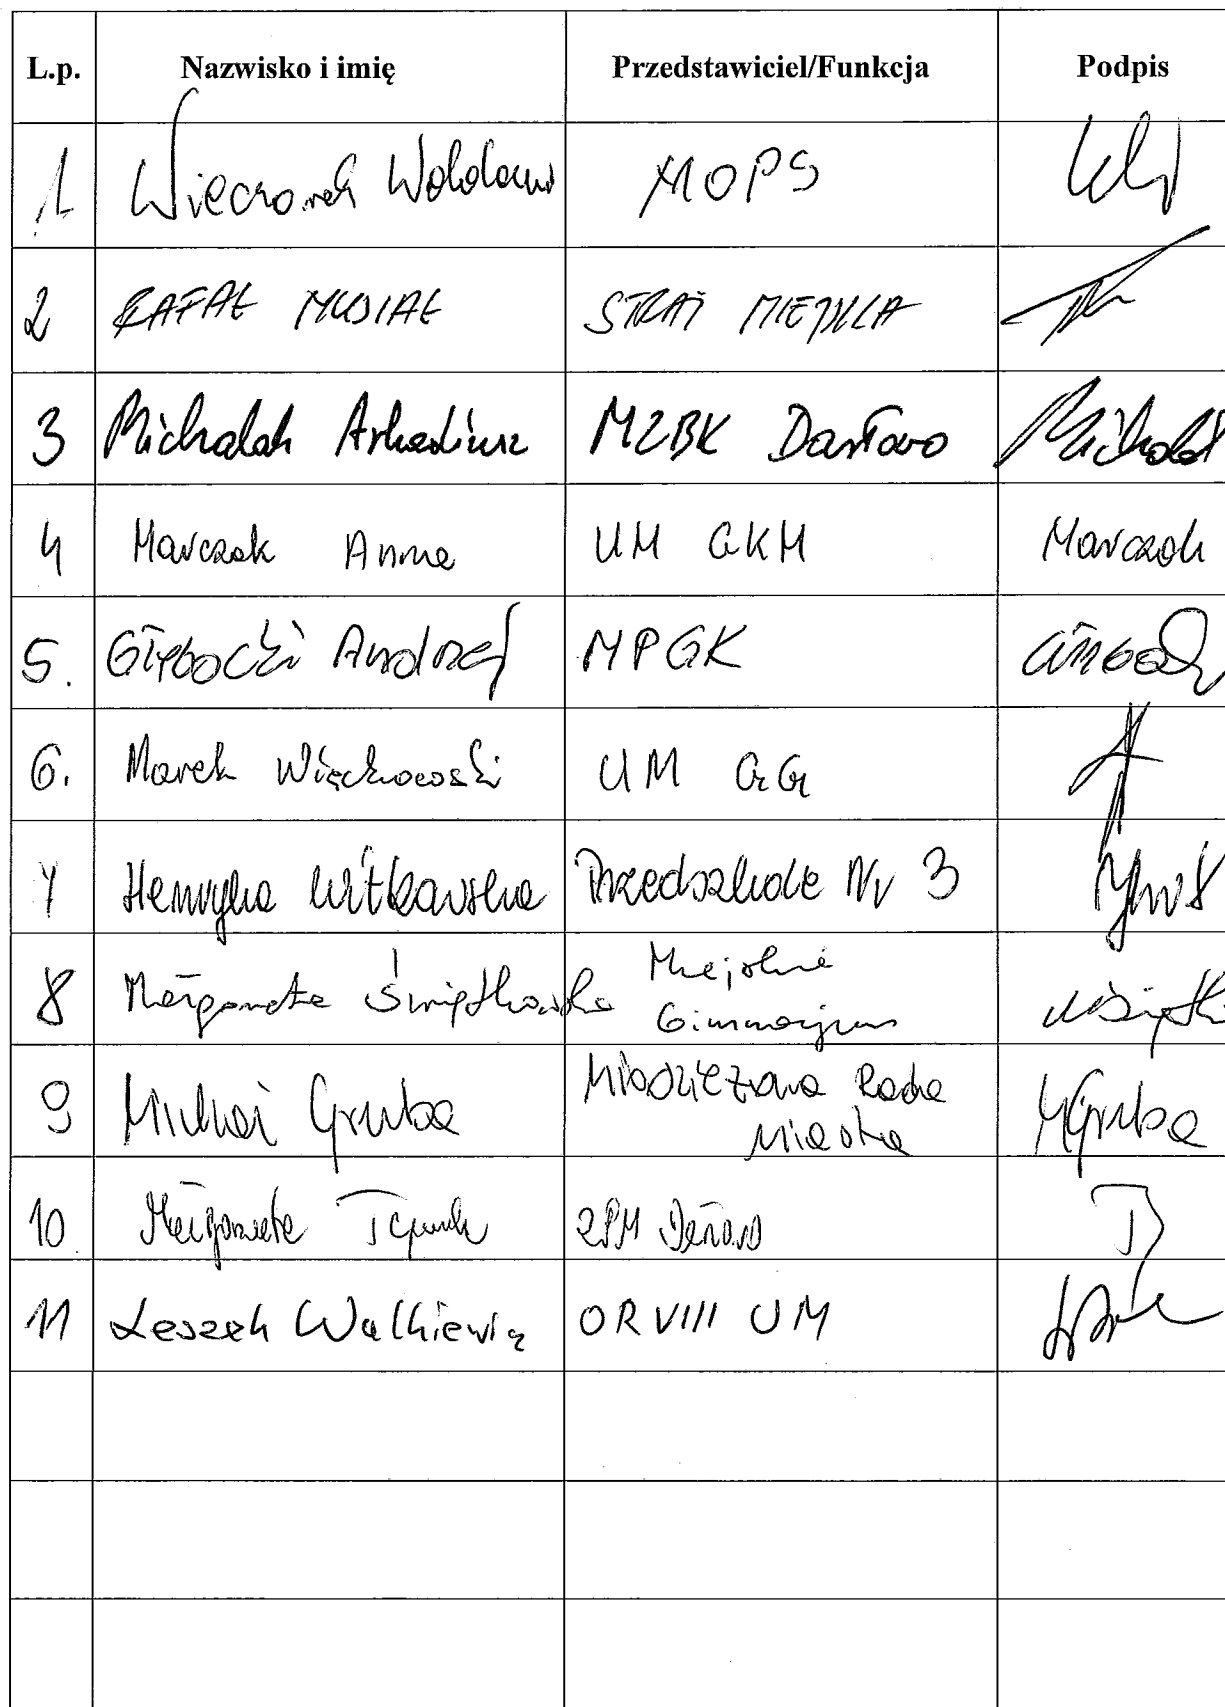 L.p. Nazwisko i imię Przedstawiciel/Funkcja Podpis
1 Wieczorek MOPS
2 RAFAŁ MUSIAŁ STRAŻ MIEJSKA
3 Michalak Arkadiusz MZBK Darłowo Michalak
4 Marczak Anna UM GKM Marczak
5. Głębocki Andrzej MPGK
6. Marek Więckowski UM GG
7 Henryka Witkowska Przedszkole Nr 3
8 Małgorzata Świątkowska Miejskie
Gimnazjum
9 Michał Gruba Młodzieżowa Rada
Miasta MGruba
10 Małgorzata ZPM
11 Leszek Walkiewicz OR VIII UM